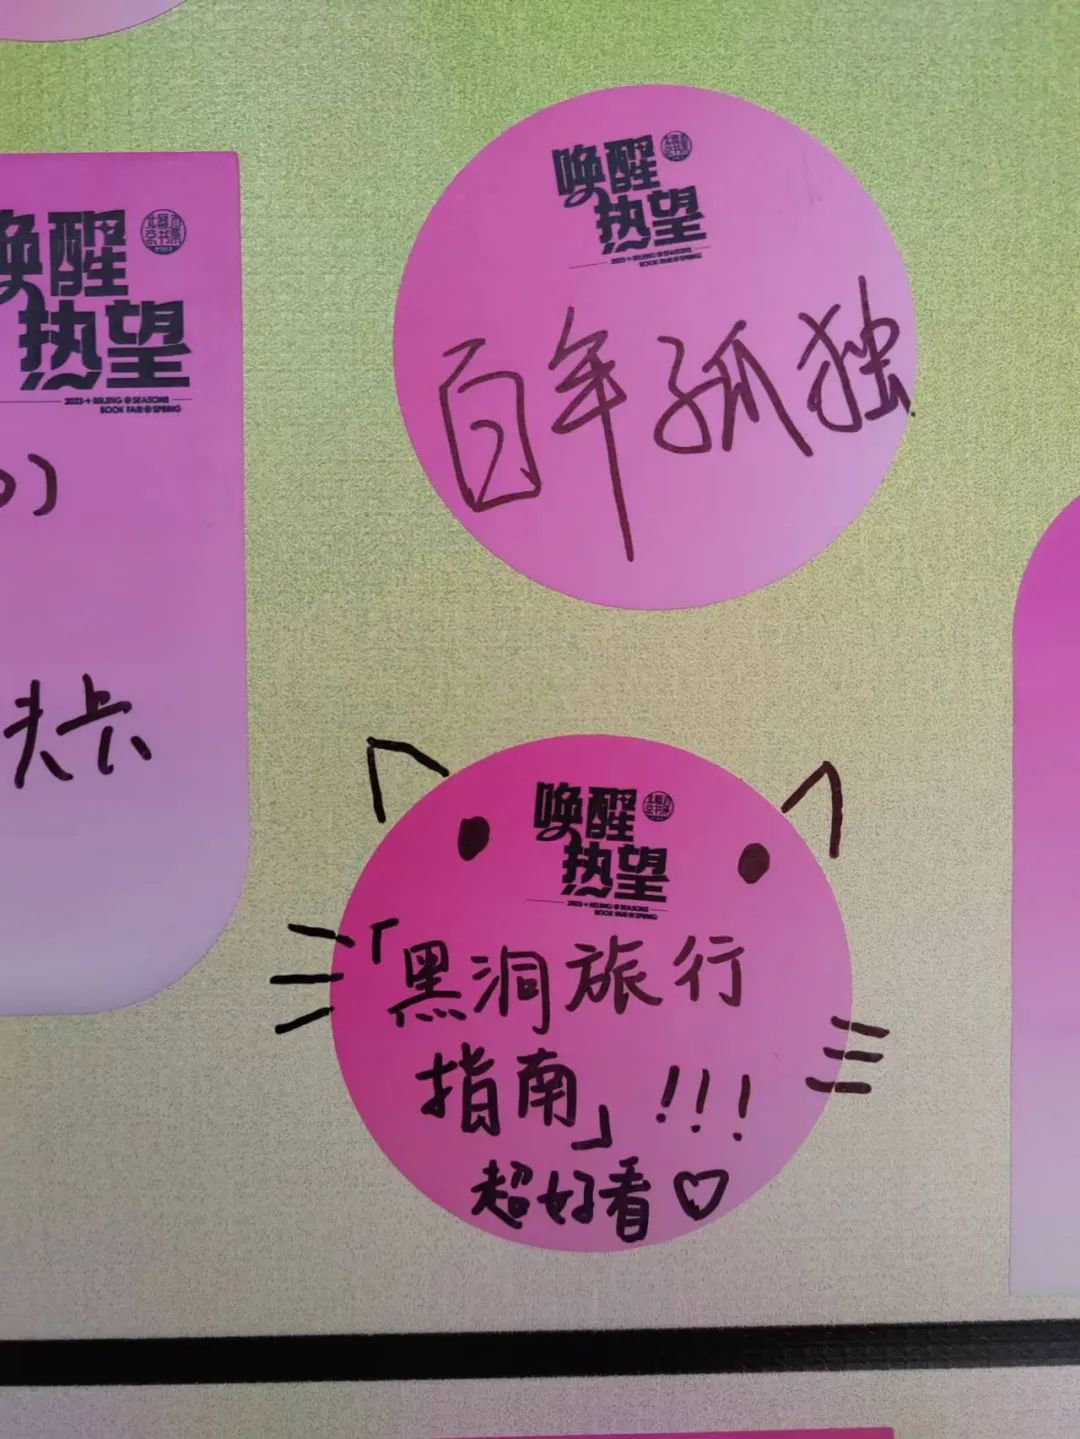 唤醒
热望
2023→BEIJING@SEASONS
BOOK FAIR@SPRING
百年孤独
唤醒
热望
2023→BEIJING@SEASONS
BOOK FAIR@SPRING
夫卡
唤醒
热望
2023→BEIJING@SEASONS
BOOK FAIR@SPRING
「黑洞旅行
指南」!!!
超好看♡